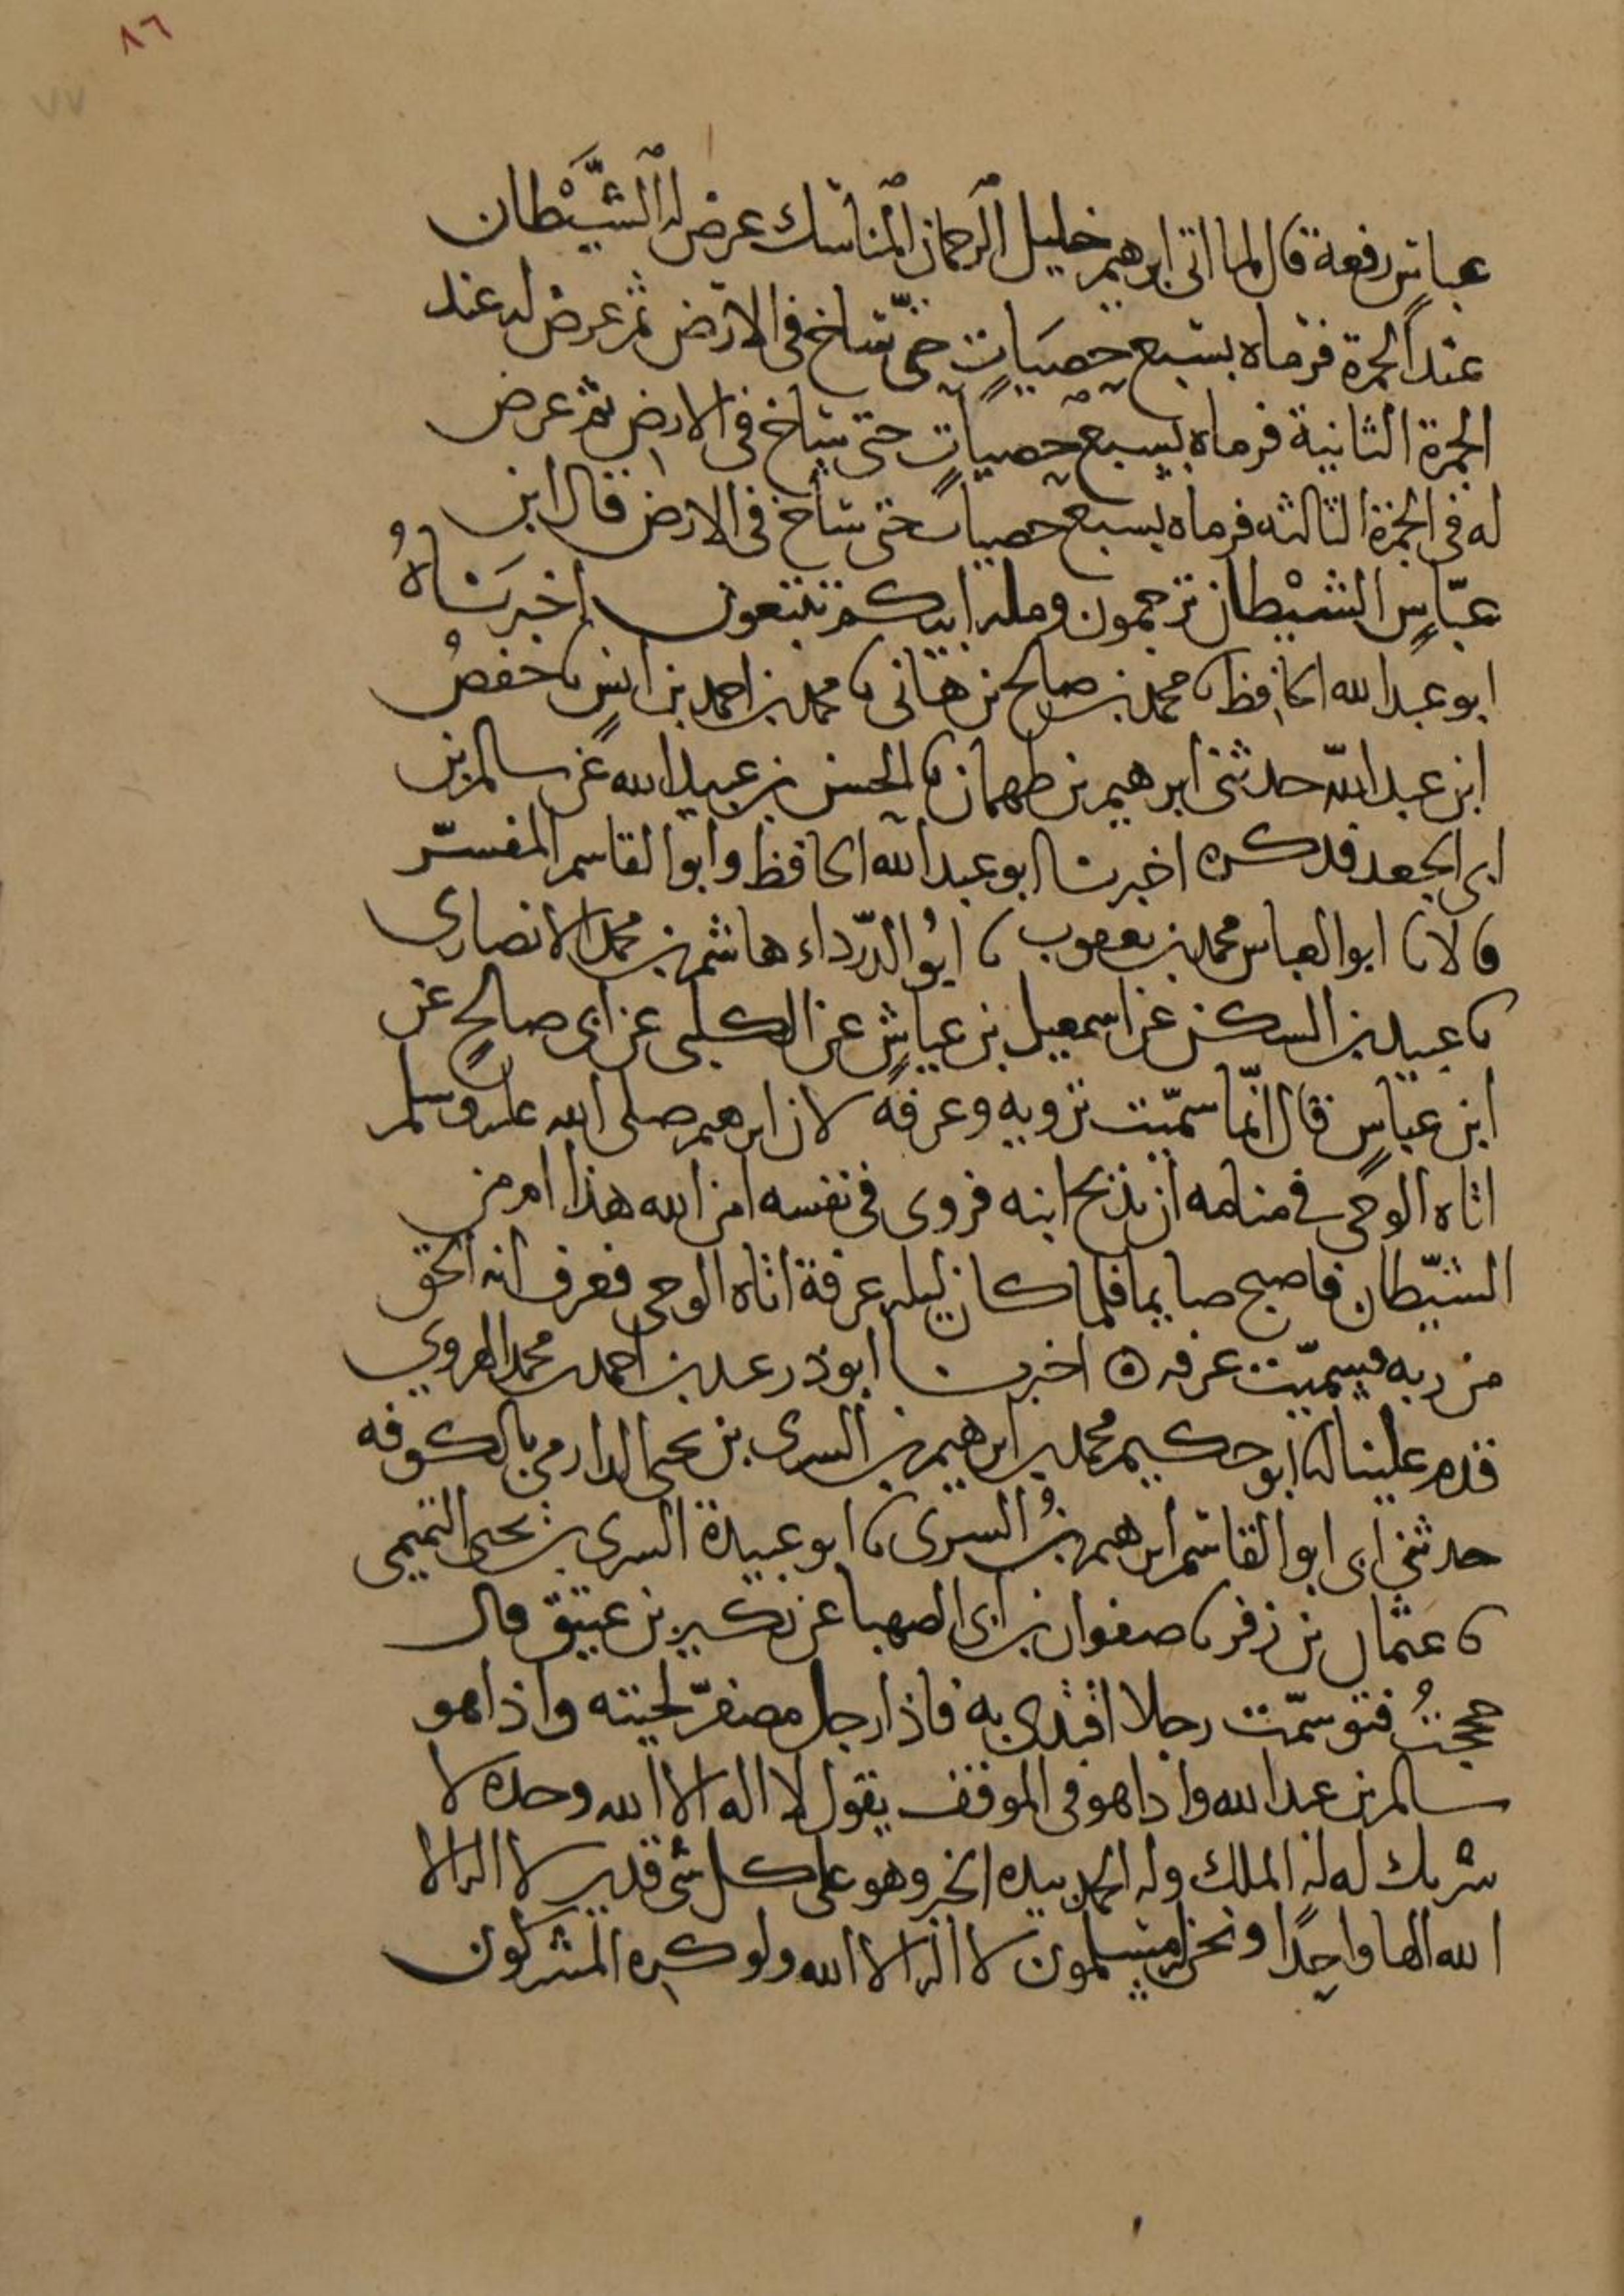 ٨٦
٧٧
عباس رفعه قال لما اتى ابرهيم خليل الرحمان المناسك عرض له الشَّيْطان
عند الجمرة فرماه بسبع حصيات حتى ساخ في الارض ثم عرض له عند
الجمرة الثانية فرماه بسبع حصيات حتى ساخ في الارض ثم عرض
له في الجمرة الثالثه فرماه بسبع حصيات حتى ساخ في الارض قال ابن
عبّاس الشيْطان ترجمون ومله ابيكم تتبعون اخبرناهُ
ابو عبد الله الحافظ نا محمد بن صالح بن هانى نا محمد بن احمد بن انس نا حفصُ
ابن عبد الله حدثنى ابرهيم بن طهمان نا الحسن بن عبيد الله عن سالم بن
ابى الجعد فذكره اخبرنا ابو عبد الله الحافظ وابو القاسم المفسّر
قالا نا ابو العباس محمد بن يعقوب نا ابُو الدّرداء هاشم بن محمد الانصارى
نا عبيد بن السكن عن اسمعيل بن عياش عن الكلبى عن ابى صالح عن
ابن عباس قال انّما سمّيت تروية وعرفة لان ابرهيم صلى الله عليه وسلم
اتاه الوحى في منامه ان يذبح ابنه فروى في نفسه امن الله هذا ام من
الشيّطان فاصبح صايما فلما كان ليله عرفة اتاه الوحى فعرف انه الحق
من ربه فسميّت عرفه ه اخبرنا ابو ذر عبد بن احمد بن محمد الهروي
قدم علينا انا ابو حكيم محمد بن ابرهيم بن السرى بن يحيى الدارمي بالكوفه
حدثنى ابى ابو القاسم ابرهيم بنُ السرى نا ابو عبيدة السرى بن يحيى التميمى
نا عثمان بن زفر نا صفوان بن ابى الصهبا عن بكير بن عتيق قال
حججتُ فتوسمّت رجلا اقتدى به فاذا رجل مصفرّ لحيته واذا هو
سالم بن عبد الله واذا هو في الموقف يقول لا اله الا الله وحده لا
شريك له له الملك وله الحمد بيده الخير وهو على كل شى قدير لا اله الا
الله الها واحدًا ونحن له مسلمون لا اله الا الله ولو كره المشركون